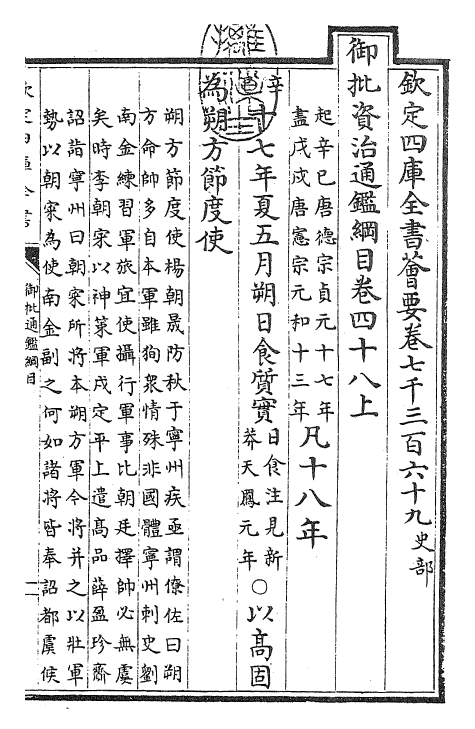 欽定四庫全書薈要卷七千三百六十九史部
御批資治通鑑綱目卷四十八上
起辛巳唐德宗貞元十七年
盡戊戌唐憲宗元和十三年
凡十八年
辛巳
十七年夏五月朔日食質實
日食注見新
莽天鳳元年
○以高固
為朔方節度使
朔方節度使楊朝晟防秋于寧州疾亟謂僚佐曰朔
方命帥多自本軍雖狥衆情殊非國體寧州刺史劉
南金練習軍旅宜使攝行軍事比朝廷擇帥必無虞
矣時李朝寀以神策軍戍定平上遣髙品薛盈珍齎
詔詣寧州曰朝寀所將本朔方軍今將并之以壯軍
勢以朝寀為使南金副之何如諸將皆奉詔都虞候
欽定四庫全書
御批通鑑綱目
一